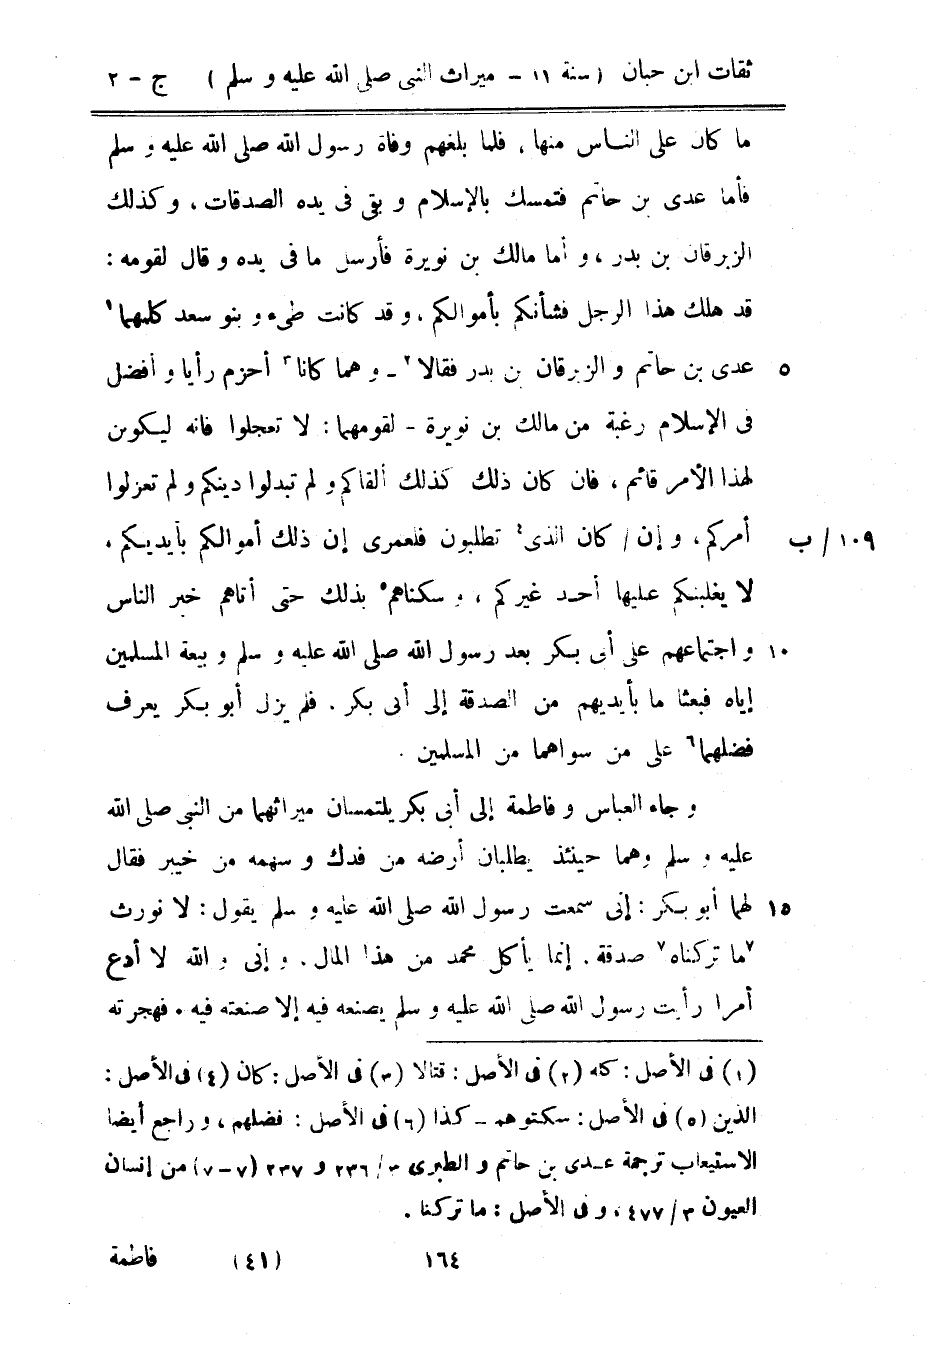 ثقات ابن حبان ( سنة ١١ - ميراث النبى صلى الله عليه و سلم ) ج - ٢
ما كان على النـاس منها، فلما بلغهم وفاة رسول الله صلى الله عليه و سلم
فأما عدى بن حاتم فتمسك بالإسلام و بقى فى يده الصدقات، و كذلك
الزبرقان بن بدر ، و أما مالك بن نويرة فأرسل ما فى يده و قال لقومه :
قد هلك هذا الرجل فشأنكم بأموالكم ، و قد كانت طىء و بنو سعد كليهما ١
٥ عدى بن حاتم و الزبرقان بن بدر فقالا ٢ - و هما كانا ٣ أحزم رأيا و أفضل
فى الإسلام رغبة من مالك بن نويرة - لقومهما : لا تعجلوا فانه ليكونن
لهذا الأمر قائم ، فان كان ذلك كذلك ألفاكم و لم تبدلوا دينكم و لم تعزلوا
أمركم، و إن / كان الذى ٤ تطلبون فلعمرى إن ذلك أموالكم بأيديكم ، ١٠٩ / ب
لا يغلبنكم عليها أحد غيركم ، و سكناهم ٥ بذلك حتى أتاهم خبر الناس
١٠ و اجتماعهم على أبى بكر بعد رسول الله صلى الله عليه و سلم و بيعة المسلمين
إياه فبعثا ما بأيديهم من الصدقة إلى أبى بكر . فلم يزل أبو بكر يعرف
فضلهما ٦ على من سواهما من المسلمين .
و جاء العباس و فاطمة إلى أبى بكر يلتمسان ميراثهما من النبى صلى الله
عليه و سلم وهما حينئذ يطلبان أرضه من فدك و سهمه من خيبر فقال
١٥ لهما أبو بكر : إنى سمعت رسول الله صلى الله عليه و سلم يقول : لا نورث
٧ ما تركناه ٧ صدقة . إنما يأكل محمد من هذا المال . و إنى و الله لا أدع
أمرا رأيت رسول الله صلى الله عليه و سلم يصنعه فيه إلا صنعته فيه . فهجرته
(١) فى الأصل : كله (٢) فى الأصل : قتالا (٣) فى الأصل : كان (٤) فى الأصل :
الذين (٥) فى الأصل : سكتوهم - كذا (٦) فى الأصل : فضلهم ، و راجع أيضا
الاستيعاب ترجمة عدى بن حاتم و الطبرى ٣ / ٢٣٦ و ٢٣٧ (٧-٧) من إنسان
العيون ٣ / ٤٧٧ ، و فى الأصل : ما تركنا .
١٦٤ (٤١) فاطمة